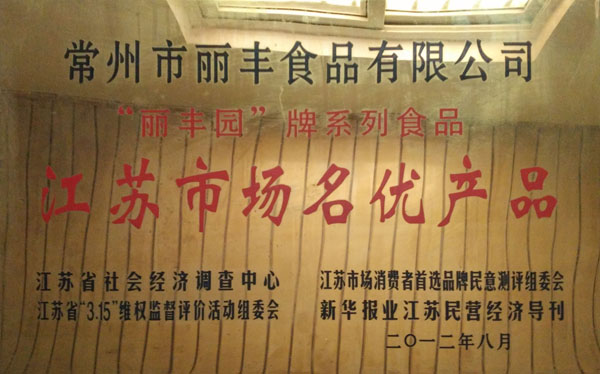 常州市丽丰食品有限公司
“丽丰园”牌系列食品
江苏市场名优产品
江苏省社会经济调查中心
江苏省“3.15”维权监督评价活动组委会
江苏市场消费者首选品牌民意测评组委会
新华报业江苏民营经济导刊
二〇一二年八月